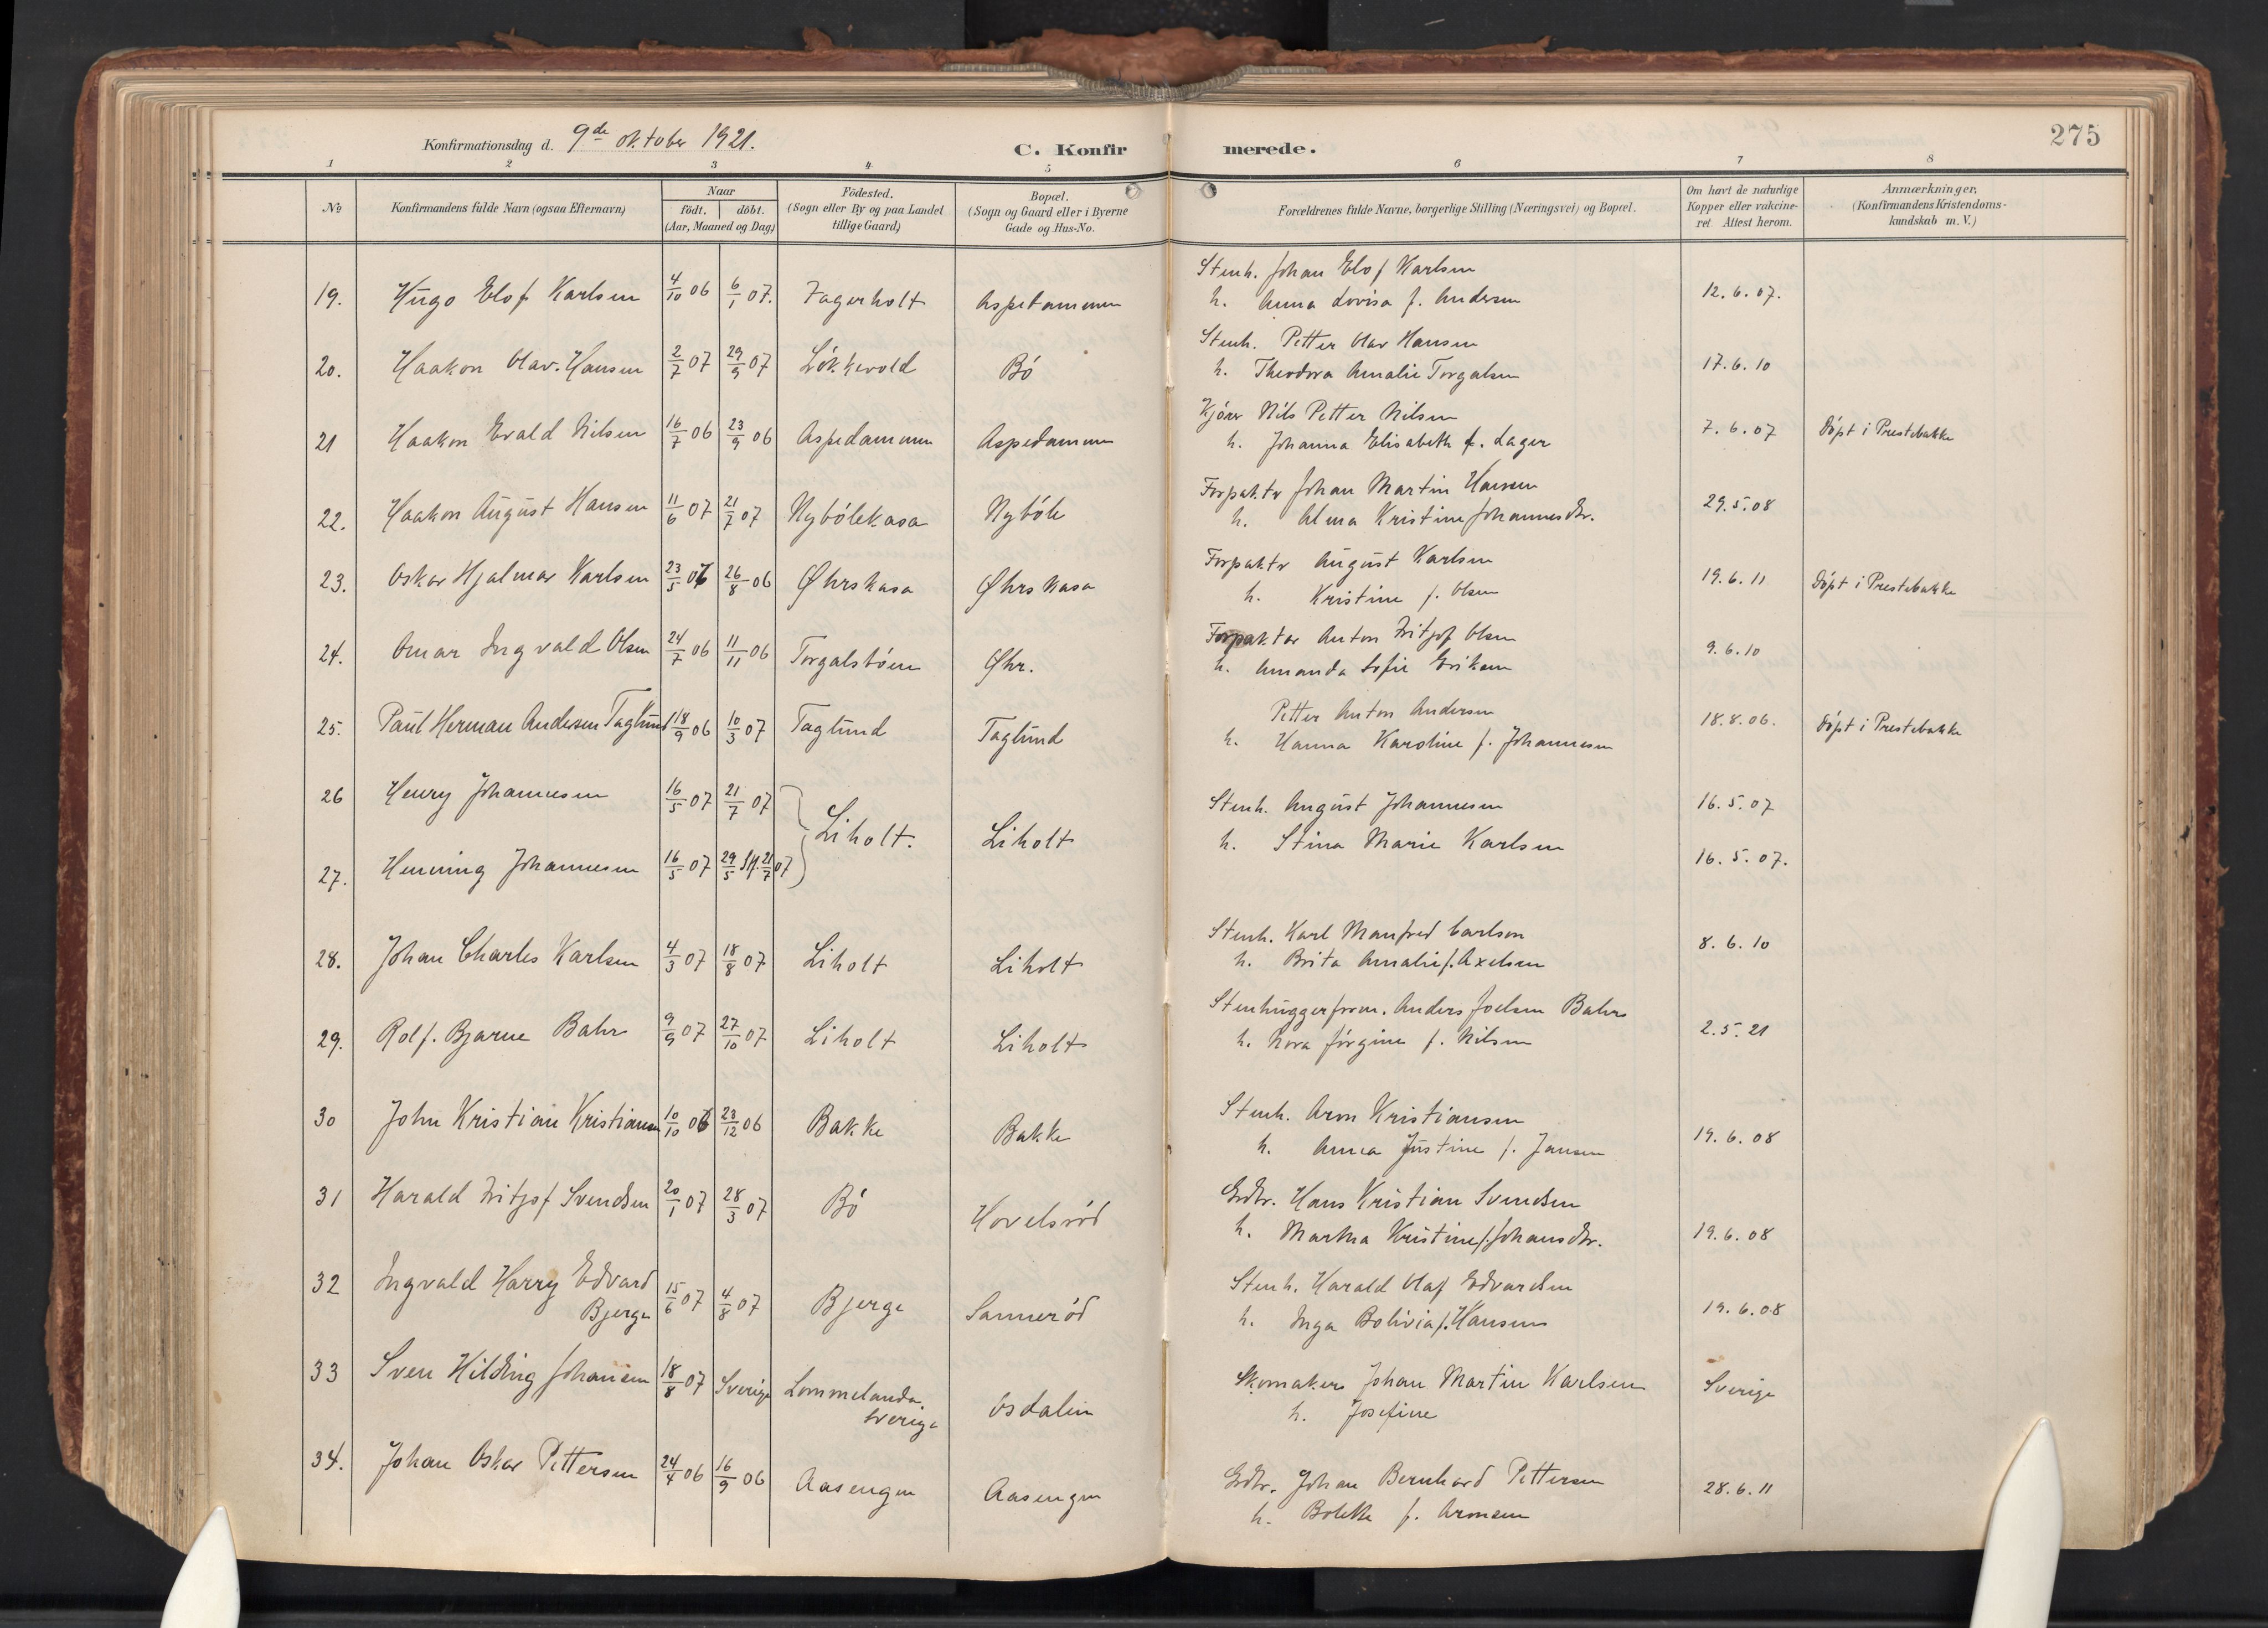 Konfirmationsdag d. 9de oktober 1921. C. Konfirmerede. 275
1 2 3 4 5 6 7 8
No Konfirmandens fulde Navn (ogsaa Efternavn) Naar født. døbt. (Aar, Maaned og Dag) Födested. (Sogn eller By og paa Landet tillige Gaard) Bopæl. (Sogn og Gaard eller i Byerne Gade og Hus-No. Forældrenes fulde Navne, borgerlige Stilling (Næringsvei) og Bopæl. Om havt de naturlige Kopper eller vakcineret Attest herom. Anmærkninger, (Konfirmandens Kristendomskundskab m. V.)
19. Hugo Elof Karlsen 4/10 06 6/1 07. Fagerholt Aspedammen Stenh. Johan Elof Karlsen 12.6.07.
h. Anna Lovisa f. Andersen
20. Haakon Olav Hansen 2/7 07 29/9 07 Løkkevold Bö Stenh. Petter Olav Hansen 17.6.10
h. Theodora Amalie Torgalsen
21 Haakon Evald Nilsen 16/7 06 23/9 06 Aspedammen Aspedammen Kjörer Nils Petter Nilsen 7.6.07 Döpt i Prestebakke
h. Johanna Elisabeth f. Lager
22. Haakon August Hansen 11/6 07 21/7 07 Nybölekasa Nyböle Forpaktr Johan Martin Hansen 29.5.08
h. Alma Kristine Johannesdtr.
23. Oskar Hjalmar Karlsen 23/5 06 26/8 06 Øhrskasa Øhrskasa Forpaktr August Karlsen 19.6.11 Döpt i Prestebakke
h. Kristine f. Olsen
24. Omar Ingvald Olsen 24/7 06 11/11 06 Torgalsböen Øhr. Forpaktar Anton Fritjof Olsen 9.6.10
h. Amanda Sofie Eriksen
25. Paul Herman Andersen Taglund 18/9 06 10/3 07 Taglund Taglund Petter Anton Andersen 18.8.06. Döpt i Prestebakke
h. Hanna Karoline f. Johannesen
26 Henry Johannesen 16/5 07 21/7 07 Liholt. Liholt Stenh. August Johannesen 16.5.07
h. Stina Marie Karlsen
27. Henning Johannesen 16/5 07 29/5 Sf. 21/7 07 16.5.07.
28. Johan Charles Karlsen 4/3 07 18/8 07 Liholt Liholt Stenh. Karl Manfred Carlson 8.6.10
h. Brita Amalie f. Axelsen
29. Rolf. Bjarne Bahr 9/9 07 27/10 07 Liholt Liholt Stenhuggerform. Anders Joelsen Bahr 2.5.21
h. Nora Jörgine f. Nilsen
30 John Kristian Kristiansen 10/10 06 23/12 06 Bakke Bakke Stenh. Aron Kristiansen 19.6.08
h. Anna Justine f. Jansen
31 Harald Fritjof Svendsen 20/1 07 28/3 07 Bö Hovelsröd Grdbr. Hans Kristian Svendsen 19.6.08
h. Martha Kristine f. Johansdtr.
32 Ingvald Harry Edvard Bjerge 15/6 07 4/8 07 Bjerge Sanneröd Stenh. Harald Olaf Edvardsen 19.6.08
h. Inga Bolivia f. Hansen
33 Sven Hilding Johansen 18/8 07 Sverige Lommelanda, Sverige Osdalen Skomaker Johan Martin Karlsen Sverige
h. Josefine
34. Johan Oskar Pettersen 24/4 06 16/9 06 Aasengen Aasengen Grdbr. Johan Bernhard Pettersen 28.6.11
h. Bolette f. Aronsen